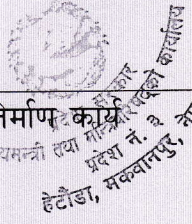 निर्माण कार्य
प्रदेश सरकार
मुख्यमन्त्री तथा मन्त्रिपरिषद्को कार्यालय
प्रदेश नं. ३
हेटौंडा, मकवानपुर,